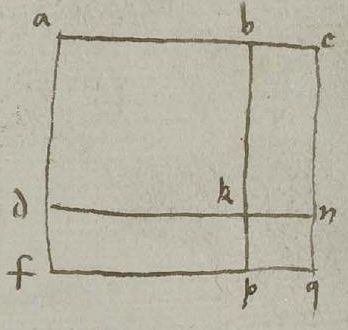 a b c
d k n
f p q